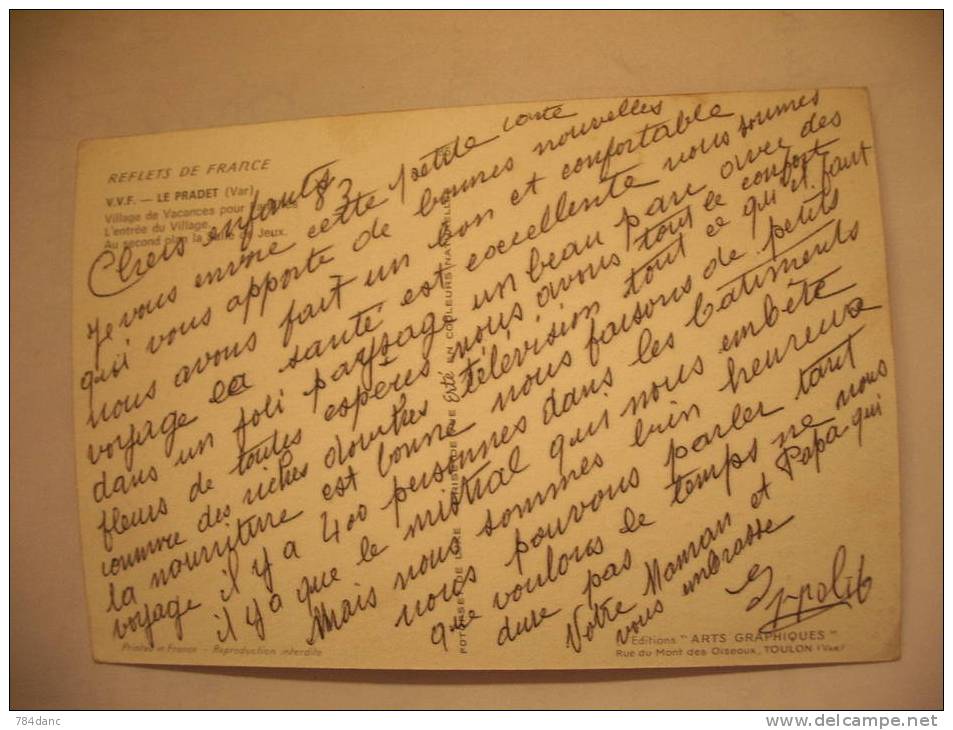 REFLETS DE FRANCE
V.V.F. — LE PRADET (Var)
Village de Vacances pour
L'entrée du Village.
Au second plan la Salle de Jeux.
Chers enfants
Je vous envoie cette petite carte
qui vous apporte de bonnes nouvelles
nous avons fait un bon et confortable
voyage la santé est excellente nous sommes
dans un joli paysage un beau parc avec des
fleurs de toutes espères nous avons tout le confort
comme des riches douches télévision tout ce qu'il faut
la nourriture est bonne nous faisons de petits
voyage il y a 400 personnes dans les bâtiments
il y a que le mistral qui nous embête
Mais nous sommes bien heureux
nous pouvons parler tant
que voulons le temps ne nous
dure pas
Votre Maman et Papa qui
vous embrasse
Ippolit
POTOTHÈQUE LUXE PRISE DE VUE Erté EN COULEURS NATURELLES
Printed in France - Reproduction interdite
Editions "ARTS GRAPHIQUES"
Rue du Mont des Oiseoux, TOULON (Var)
784danc
www.delcampe.net